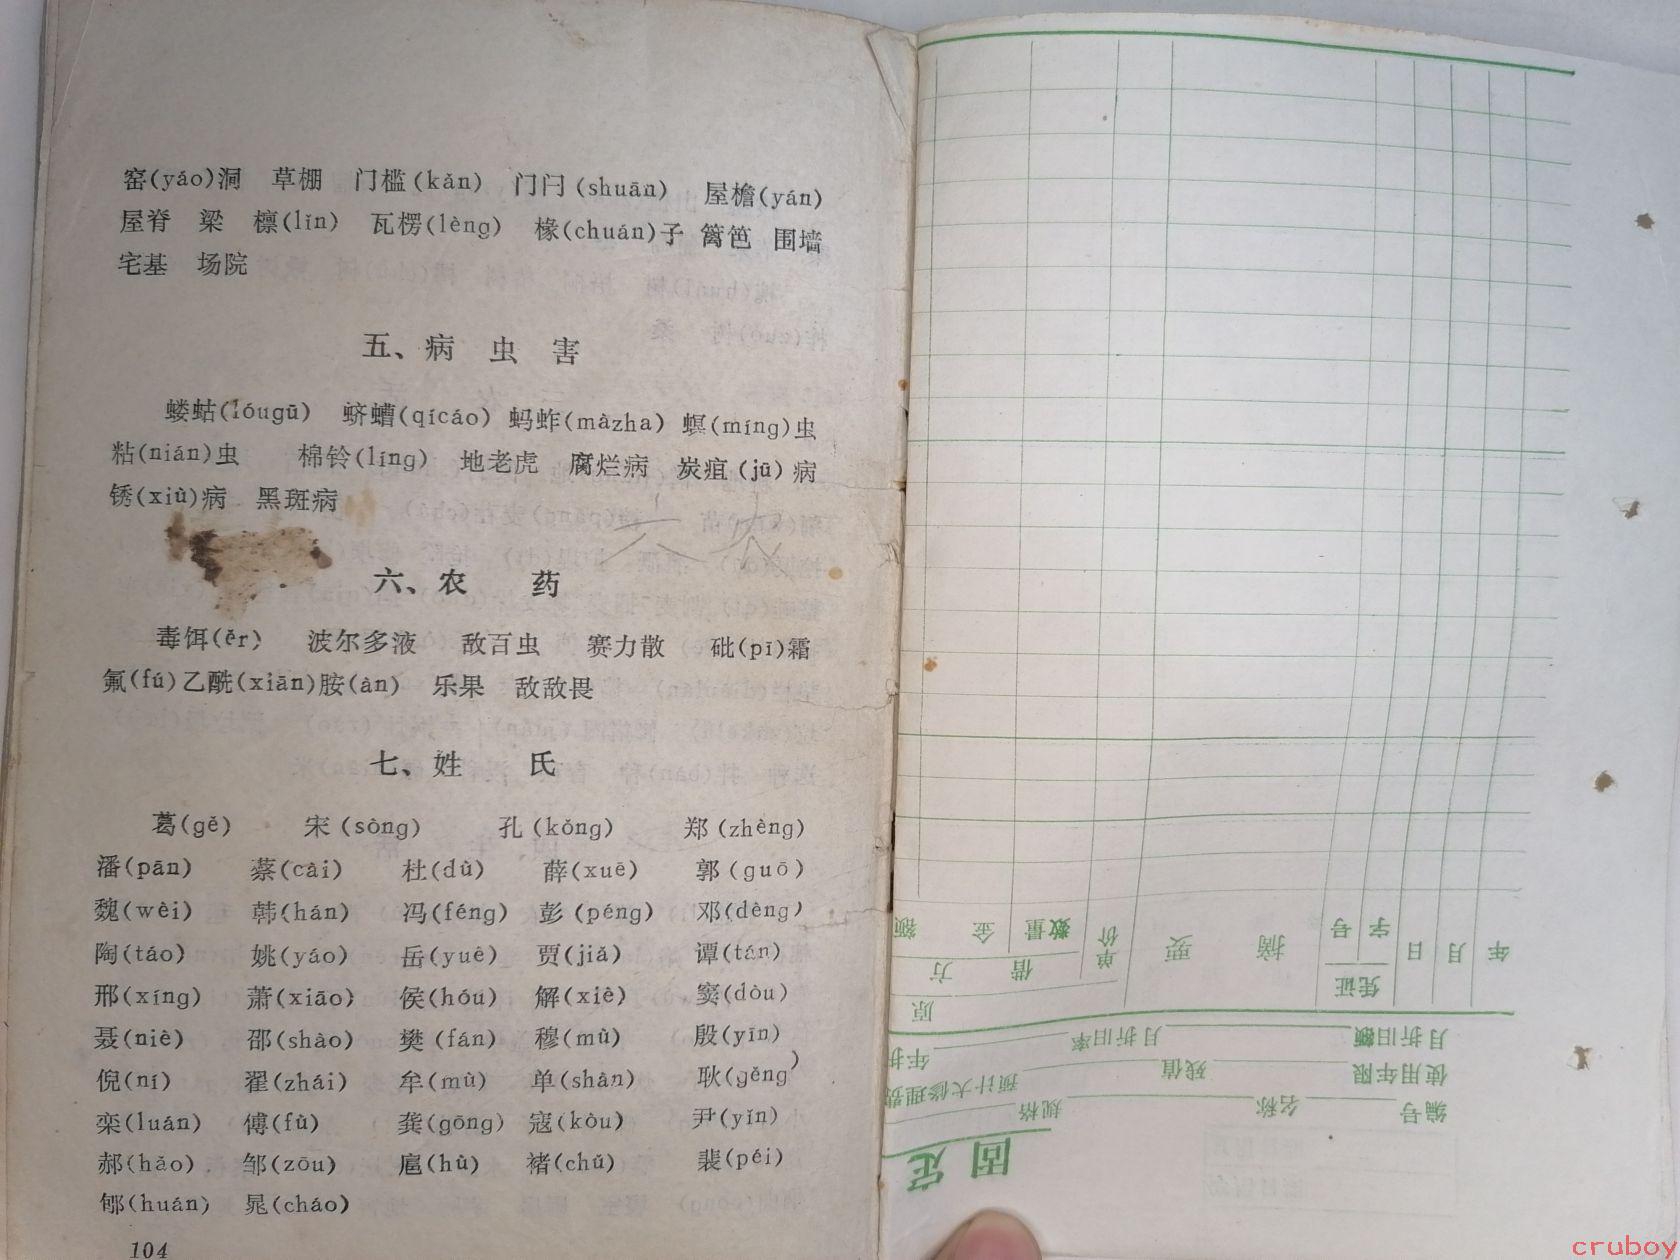 窑(yáo)洞 草棚 门槛(kǎn) 门闩(shuān) 屋檐(yán)
屋脊 梁 檩(lǐn) 瓦楞(lèng) 椽(chuán)子 篱笆 围墙
宅基 场院
五、病 虫 害
蝼蛄(lóugū) 蛴螬(qícáo) 蚂蚱(màzha) 螟(míng)虫
粘(nián)虫 棉铃(líng) 地老虎 腐烂病 炭疽(jū)病
锈(xiù)病 黑斑病
六、农 药
毒饵(ěr) 波尔多液 敌百虫 赛力散 砒(pī)霜
氟(fú)乙酰(xiān)胺(àn) 乐果 敌敌畏
七、姓 氏
葛(gě) 宋(sòng) 孔(kǒng) 郑(zhèng)
潘(pān) 蔡(cài) 杜(dù) 薛(xuē) 郭(guō)
魏(wèi) 韩(hán) 冯(féng) 彭(péng) 邓(dèng)
陶(táo) 姚(yáo) 岳(yuè) 贾(jiǎ) 谭(tán)
邢(xíng) 萧(xiāo) 侯(hóu) 解(xiè) 窦(dòu)
聂(niè) 邵(shào) 樊(fán) 穆(mù) 殷(yīn)
倪(ní) 翟(zhái) 牟(mù) 单(shàn) 耿(gěng)
栾(luán) 傅(fù) 龚(gōng) 寇(kòu) 尹(yǐn)
郝(hǎo) 邹(zōu) 扈(hù) 褚(chǔ) 裴(péi)
郇(huán) 晁(cháo)
104
固定
编号 名称 规格
使用年限 残值 预计大修理费
月折旧额 月折旧率 年折
年 月 日 凭证 摘 要 单价 借 方 原
字 号 数量 金 额
cruboy